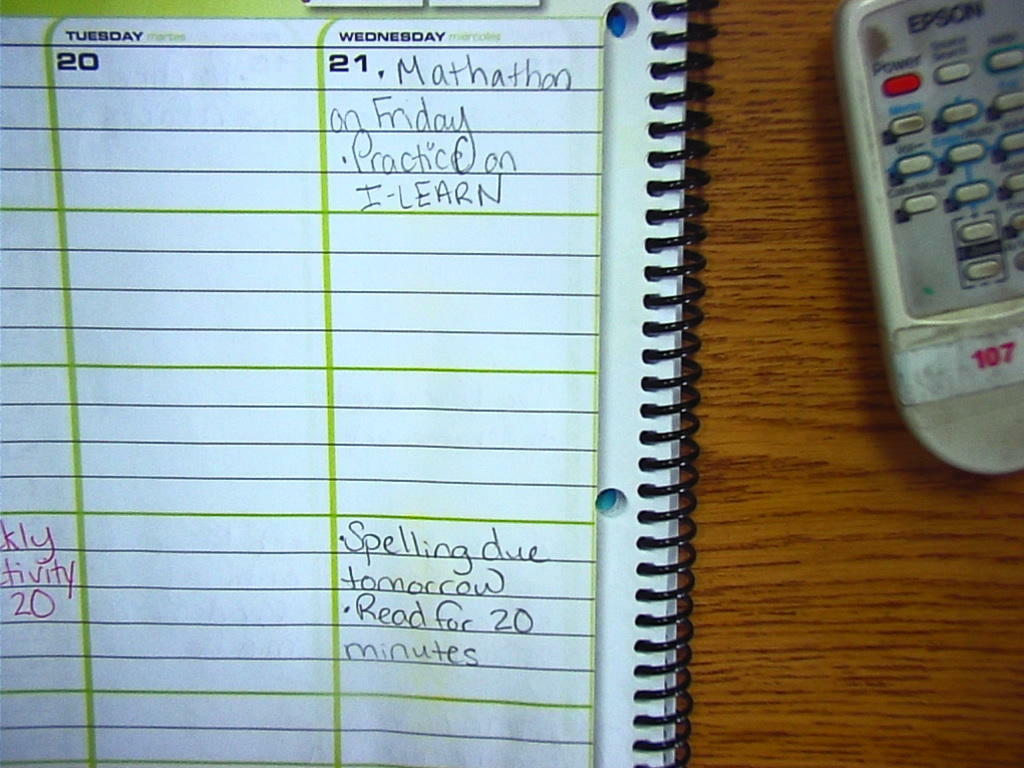 TUESDAY martes
20
WEDNESDAY miércoles
21 . Mathathon
on Friday
. Practice on
I-LEARN
kly
tivity
20
. Spelling due
tomorrow
. Read for 20
minutes
EPSON
Power
107